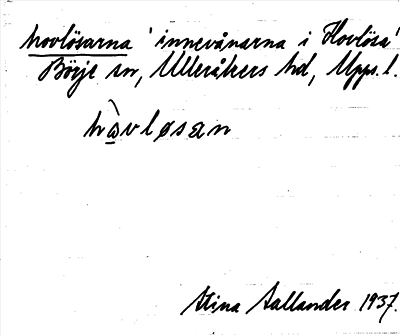 hovlösarna 'innevånarna i Hovlösa'
Börje sn, Ulleråkers hd, Upps. l.
hòvløsan
Stina Hallander 1937.